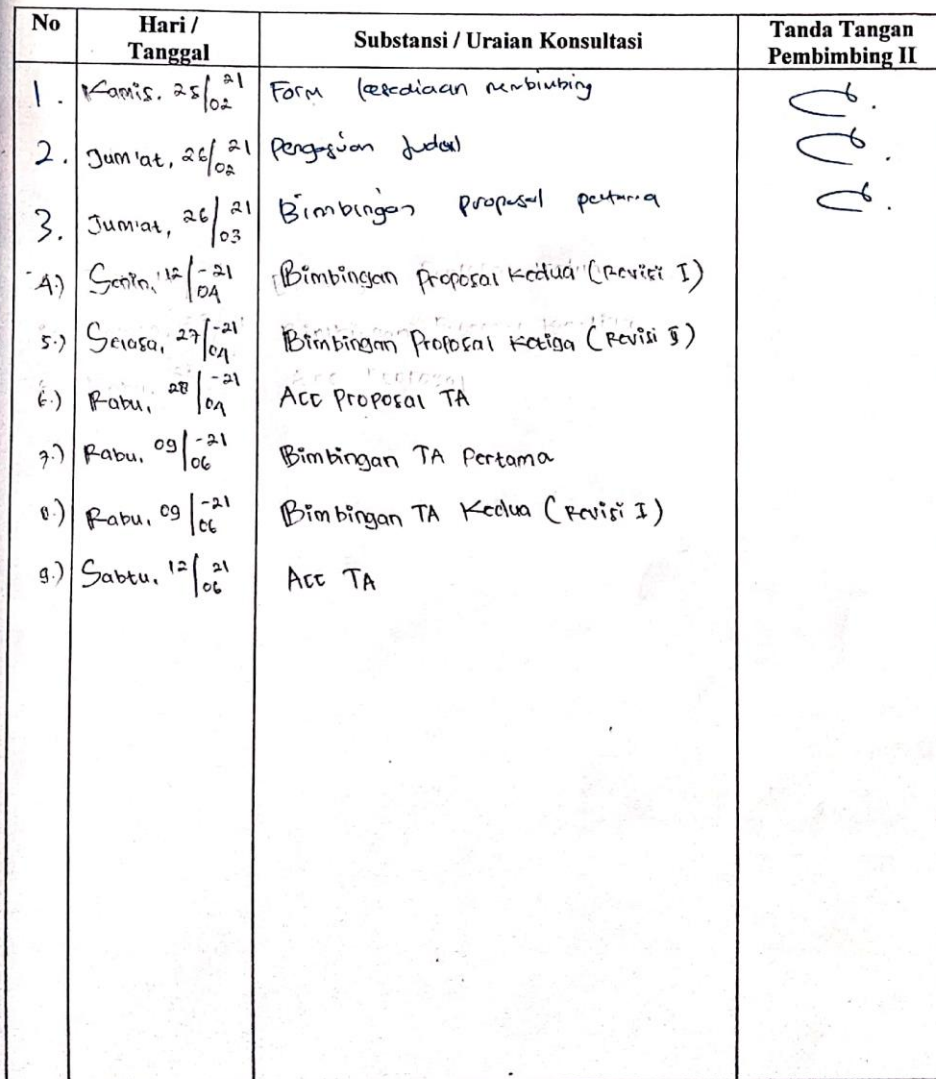 No Hari / Tanggal Substansi / Uraian Konsultasi Tanda Tangan Pembimbing II
1. Kamis, 25/02 21 Form kesediaan membimbing
2. Jum'at, 26/02 21 Pengajuan Judul
3. Jum'at, 26/03 21 Bimbingan proposal pertama
4.) Senin, 12/04 -21 Bimbingan Proposal Kedua (Revisi I)
5.) Selasa, 27/04 -21 Bimbingan Proposal Ketiga (Revisi II)
6.) Rabu, 28/04 -21 Acc Proposal TA
7.) Rabu, 09/06 -21 Bimbingan TA Pertama
8.) Rabu, 09/06 -21 Bimbingan TA Kedua (Revisi I)
9.) Sabtu, 12/06 21 Acc TA